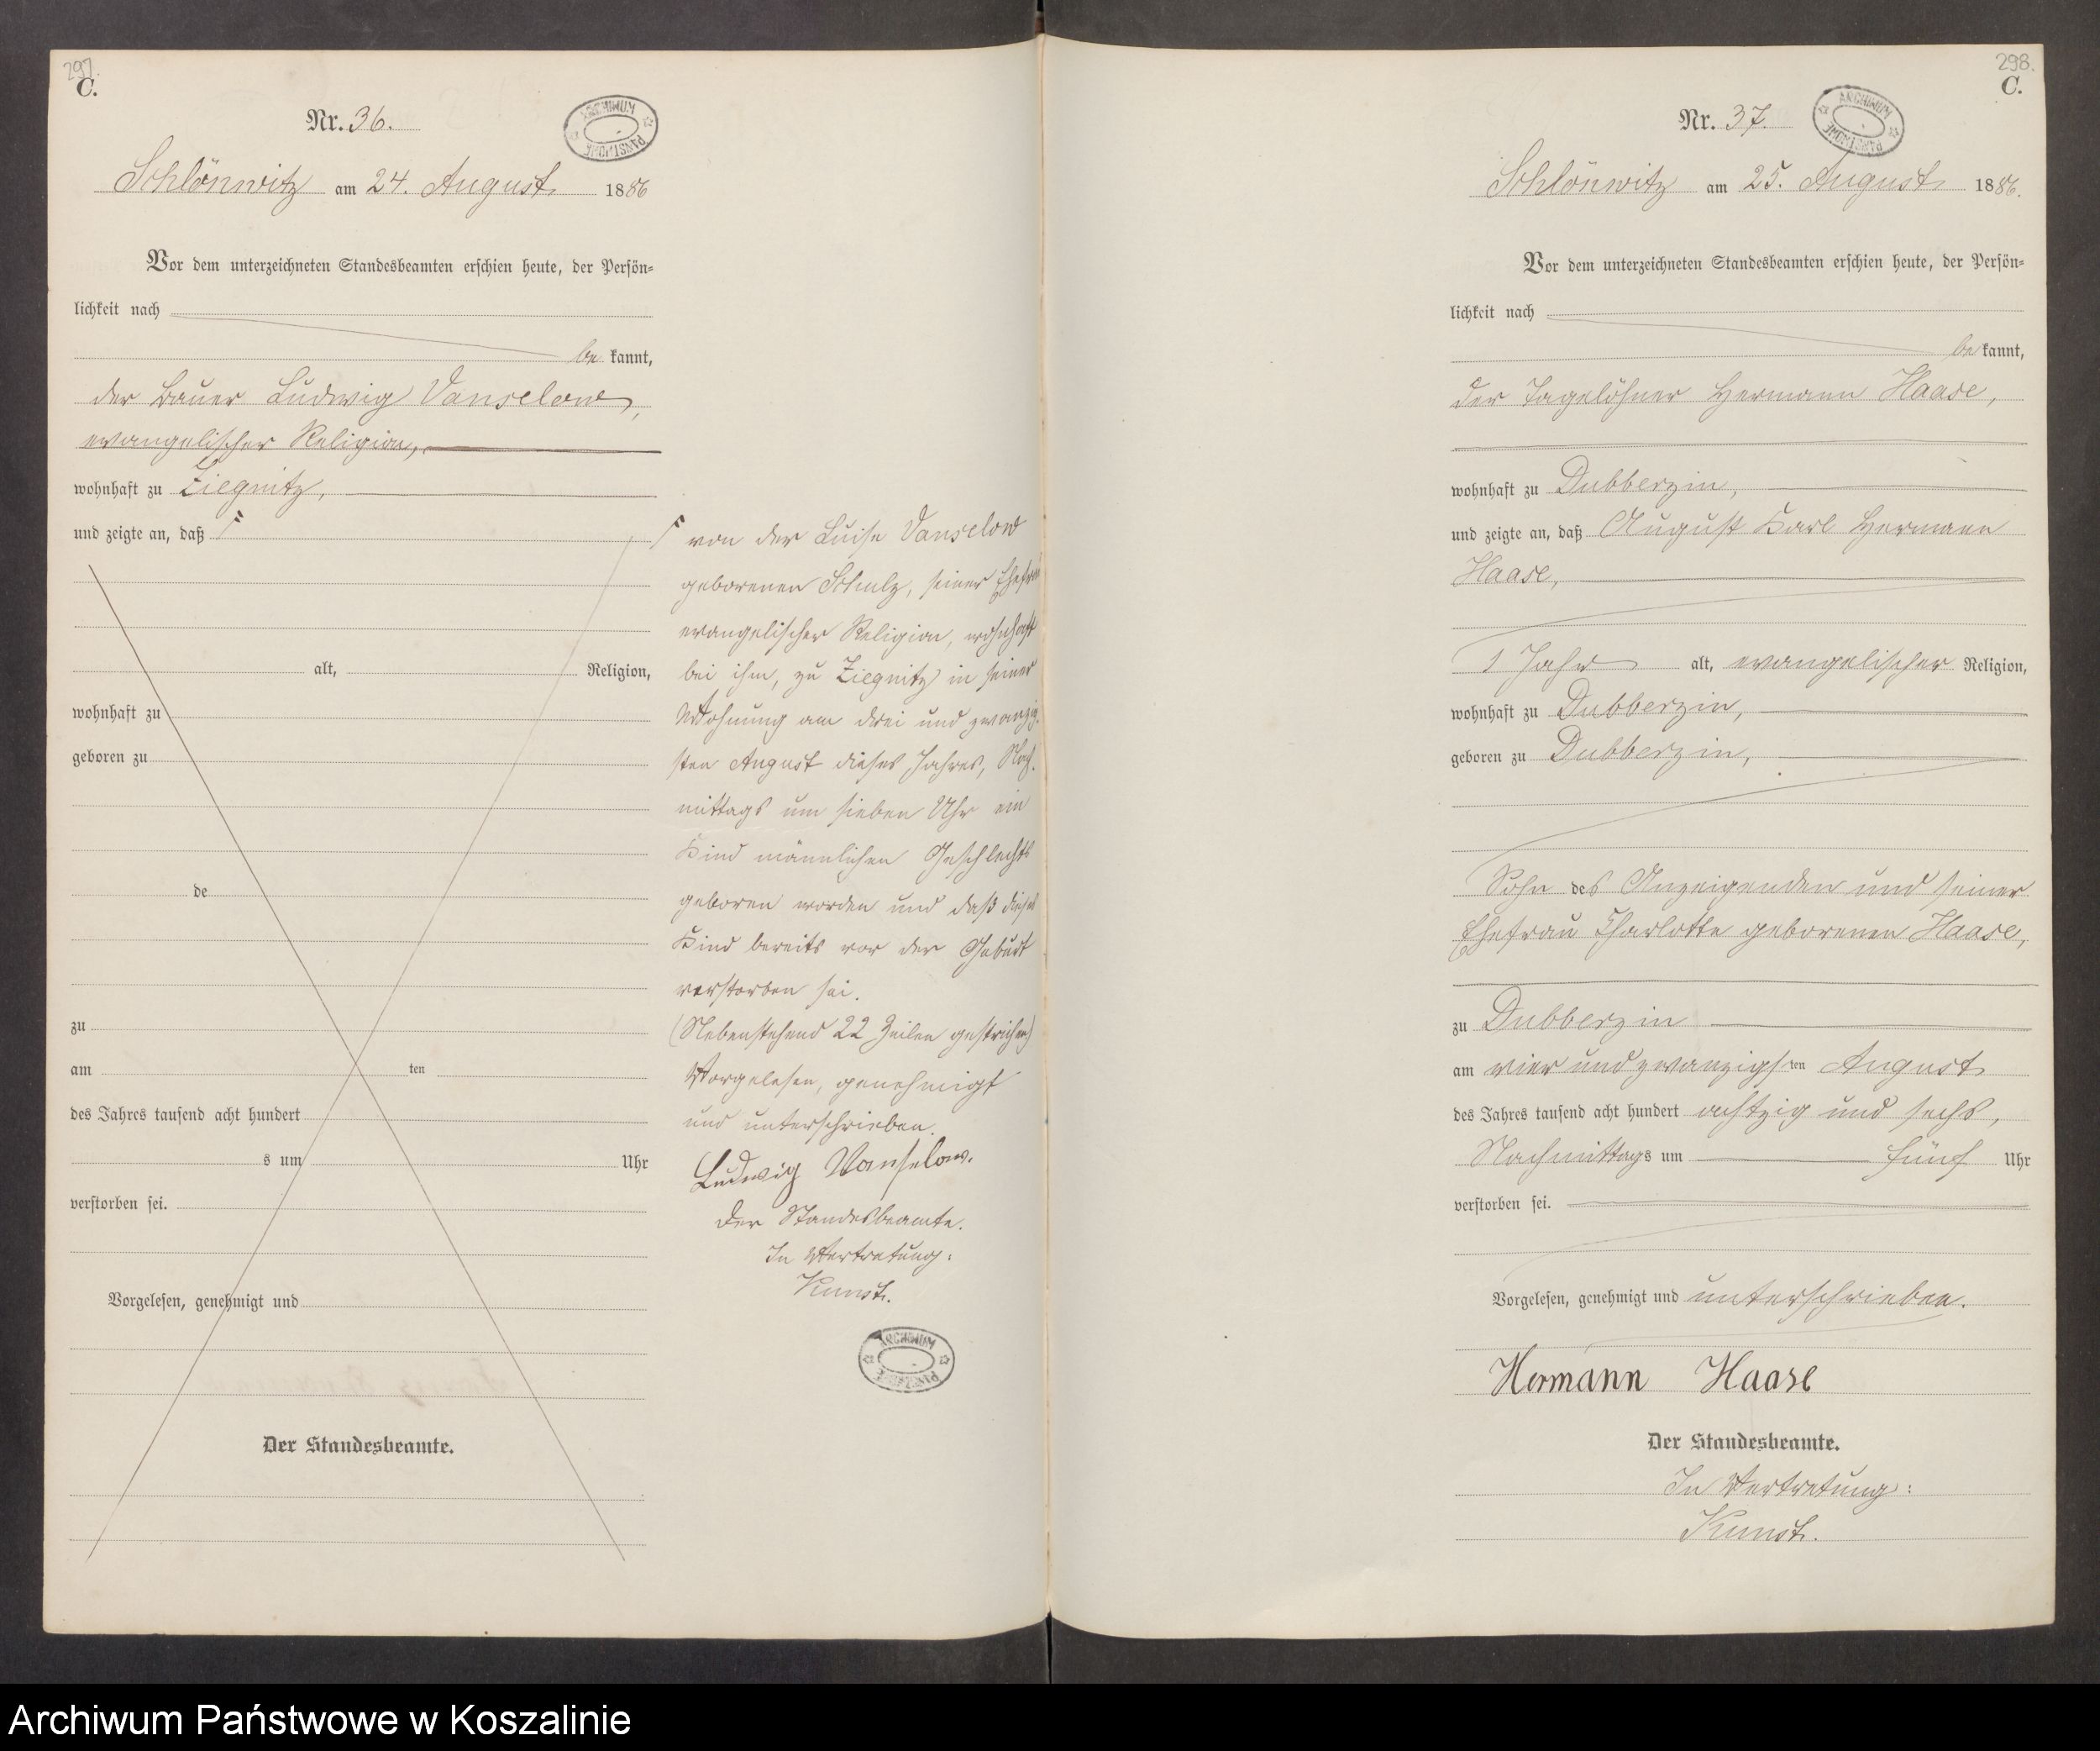 297.
C.
Nr. 36.
ARCHIWUM PAŃSTWOWE
Schlönwitz am 24. August 1886
Vor dem unterzeichneten Standesbeamten erschien heute, der Persön=
lichkeit nach
be kannt,
der Bauer Ludwig Vanselow,
evangelischer Religion,
wohnhaft zu Ziegnitz,
und zeigte an, daß Γ
alt, Religion,
wohnhaft zu
geboren zu
de
zu
am ten
des Jahres tausend acht hundert
s um Uhr
verstorben sei.
Vorgelesen, genehmigt und
Der Standesbeamte.
Γ von der Luise Vanselow
geborenen Schulz, seiner Ehefrau
evangelischer Religion, wohnhaft
bei ihm, zu Ziegnitz in seiner
Wohnung am drei und zwanzig-
sten August dieses Jahres, Nach-
mittags um sieben Uhr ein
Kind männlichen Geschlechts
geboren worden und daß dieses
Kind bereits vor der Geburt
verstorben sei.
(Nebenstehend 22 Zeilen gestrichen)
Vorgelesen, genehmigt
und unterschrieben.
Ludwig Vanselow.
Der Standesbeamte.
In Vertretung:
Kunst.
ARCHIWUM PAŃSTWOWE
298.
C.
Nr. 37.
ARCHIWUM PAŃSTWOWE
Schlönwitz am 25. August 1886.
Vor dem unterzeichneten Standesbeamten erschien heute, der Persön=
lichkeit nach
be kannt,
der Tagelöhner Hermann Haase,
wohnhaft zu Dubberzin,
und zeigte an, daß August Karl Hermann
Haase,
1 Jahr alt, evangelischer Religion,
wohnhaft zu Dubberzin,
geboren zu Dubberzin,
Sohn des Anzeigenden und seiner
Ehefrau Charlotte geborenen Haase,
zu Dubberzin
am vier und zwanzigsten August
des Jahres tausend acht hundert achtzig und sechs,
Nachmittags um fünf Uhr
verstorben sei.
Vorgelesen, genehmigt und unterschrieben.
Hermann Haase
Der Standesbeamte.
In Vertretung:
Kunst.
Archiwum Państwowe w Koszalinie